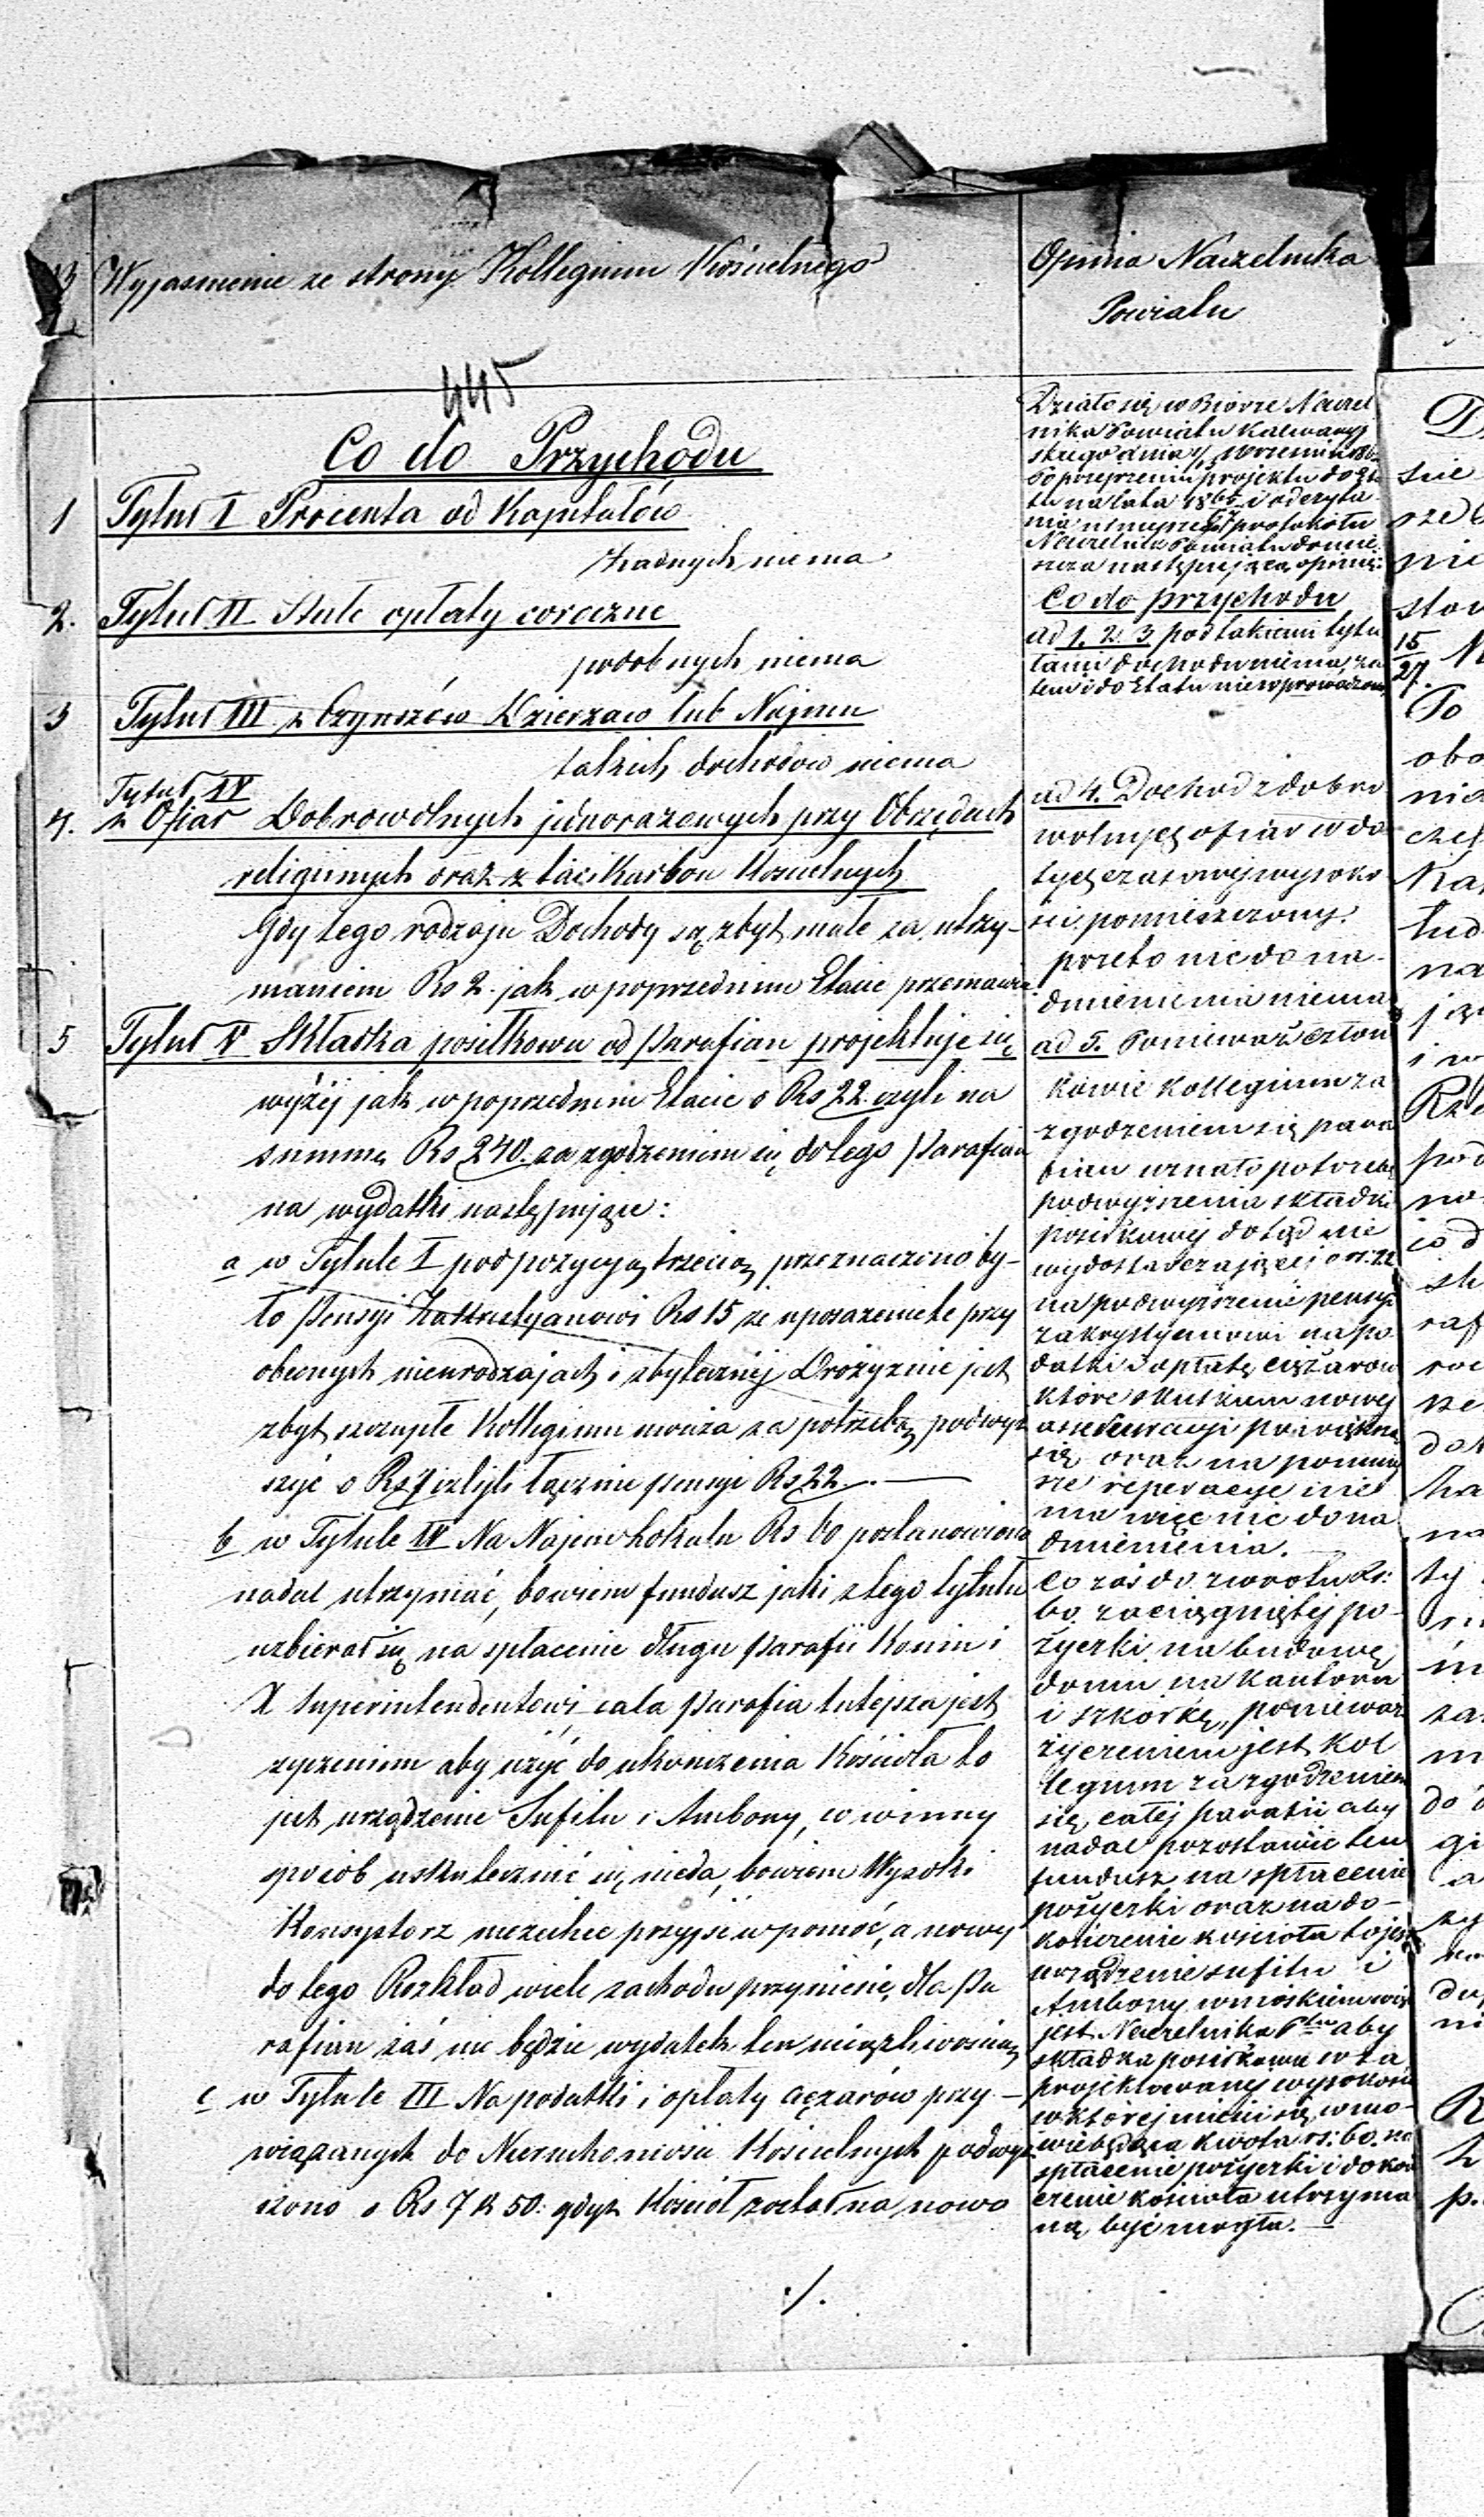 Wyjasnienie ze strony Kollegium Kościelnego
445
Co do Przychodu
1 Tytuł I Procenta od Kapitałów
żadnych niema
2. Tytuł II Stałe opłaty coroczne
podobnych niema
3 Tytuł III z Czynszów Dzierzaw lub Najmu
takich dochodow niema
Tytuł IV
4. z Ofiar Dobrowolnych jednorazowych przy Obrzędach
religijnych oraz z tac i Karbon Koscielnych
Gdy tego rodzaju Dochody są zbyt małe za utrzy-
maniem Rs 2. jak w poprzednim Etacie przemawia
5 Tytuł V Składka posiłkowa od Parafian projektuje się
wyżéj jak w poprzednim Etacie o Rs 22. czyli na
summę Rs 240. za zgodzeniem się do tego Parafian
na wydatki następujące:
a w Tytule I pod pozycyą trzecią przeznaczono by-
ło Pensyi Zakrystyanowi Rs 15 ze uposazenie te przy
obecnych nieurodzajach i zbyteczniéj Drożyznie jest
zbyt szczupłe Kollegium uważa za potrzebę podwyż
szyć o Rs 7 czlyli łącznie pensyi Rs 22. —
b w Tytule IV Na Najem Lokalu Rs 60 postanowiono
nadal utrzymać, bowiem fundusz jaki z tego tytułu
uzbierał się na spłacenie długu Parafii Konin i
X Superintendentowi cała Parafia tutejsza jest
zyczeniem aby użyć do ukonczenia Kościoła to
jest urządzenie Sufitu i Ambony, co w inny
sposób uskutecznić się nieda, bowiem Wysoki
Konsystorz niezechce przyjść w pomoć, a nowy
do tego Rozkład wiele zachodu przyniesie, dla Pa
rafian zaś nie będzie wydatek ten uciążliwością
c w Tytule III Na podatki i opłaty ciężarów przy-
wiązanych do Nieruchomosci Koscielnych podwyż
szono o Rs 7 k 50: gdyż Kościół został na nowo
./.
Opinia Naczelnika
Powiatu
Działo się w Biórze Naczel
nika Powiatu Kalwaryj
skiego dnia Wrzesnia
Po przejrzeniu projektu do Eta
tu na lata i odczyta
nia niniejszego protokółu
Naczelnik Powiatu domie
szcza następującą opinię:
Co do przychodu
ad 1. 2. 3 pod takiemi tytu
łami dochodu niema, za
tem i do Etatu niewprowadzono
ad 4. Dochod z dobro
wolnych ofiar w do
tychczasowej wysoko
ści pomieszczony.
przeto nic do na-
dmienienia niema
ad 5. Ponieważ człon
kowie Kollegium za
zgodzeniem się para
fian uznało potrzebę
podwyzszenia składki
posiłkowej dotąd nie
wydostarczającej o rs. 22
na podwyższenie pensyi
zakrystyanowi na po
datki i opłatę ciężarow
ktore skutkiem nowej
assekuracyi powiększa
się oraz na pomniej
sze reperacye nie
ma więc nic do na
dmienienia.
Co zaś do zwrotu Rs:
60. zaciągniętej po-
życzki na budowę
domu na Kantora
i szkółkę, ponieważ
życzeniem jest Kol
legium za zgodzeniem
się całej parafii aby
nadal pozostawić ten
fundusz na spłacenie
pożyczki oraz na do-
kończenie kościoła to jest
urządzenie sufitu i
Ambony wnioskiem więc
jest Naczelnika Ptu aby
składka posiłkowa w za
projektowanej wysokości
w której mieści się w mo-
wie będąca kwota rs: 60. na
spłacenie pożyczki i dokoń
czenie kościoła utrzyma
ną być mogła. —